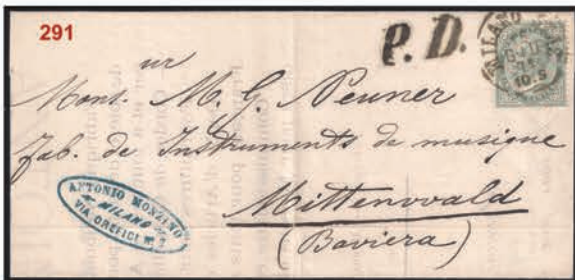 291
P. D.
MILANO
10-S
ur
Mons. M. G. Neuner
fab. de Instruments de musique
Mittenwald
(Baviera)
ANTONIO MONZINO
MILANO
VIA OREFICI